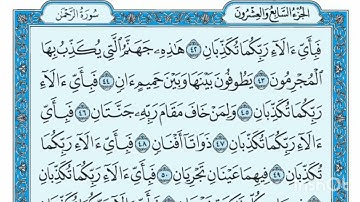 سُورَةُ الرَّحْمَٰن
الجُزْءُ السَّابِعُ وَالعِشْرُونَ
فَبِأَيِّ ءَالَآءِ رَبِّكُمَا تُكَذِّبَانِ ٤٢ هَٰذِهِۦ جَهَنَّمُ ٱلَّتِي يُكَذِّبُ بِهَا
ٱلْمُجْرِمُونَ ٤٣ يَطُوفُونَ بَيْنَهَا وَبَيْنَ حَمِيمٍ ءَانٍ ٤٤ فَبِأَيِّ ءَالَآءِ
رَبِّكُمَا تُكَذِّبَانِ ٤٥ وَلِمَنْ خَافَ مَقَامَ رَبِّهِۦ جَنَّتَانِ ٤٦ فَبِأَيِّ
ءَالَآءِ رَبِّكُمَا تُكَذِّبَانِ ٤٧ ذَوَاتَآ أَفْنَانٍ ٤٨ فَبِأَيِّ ءَالَآءِ رَبِّكُمَا
تُكَذِّبَانِ ٤٩ فِيهِمَا عَيْنَانِ تَجْرِيَانِ ٥٠ فَبِأَيِّ ءَالَآءِ رَبِّكُمَا تُكَذِّبَانِ